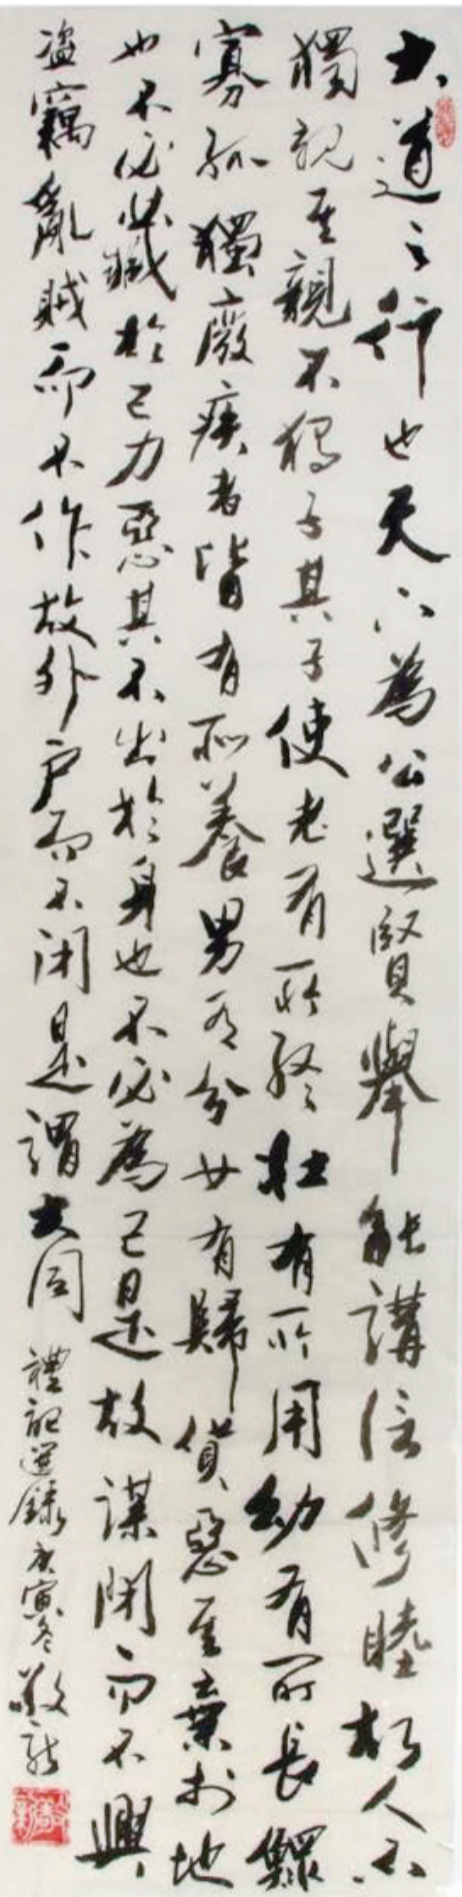 大道之行也天下為公選賢舉能講信修睦故人不
獨親其親不獨子其子使老有所終壯有所用幼有所長鰥
寡孤獨廢疾者皆有所養男有分女有歸貨惡其棄於地
也不必藏於己力惡其不出於身也不必為己是故謀閉而不興
盜竊亂賊而不作故外戶而不閉是謂大同 禮記選錄庚寅冬敬